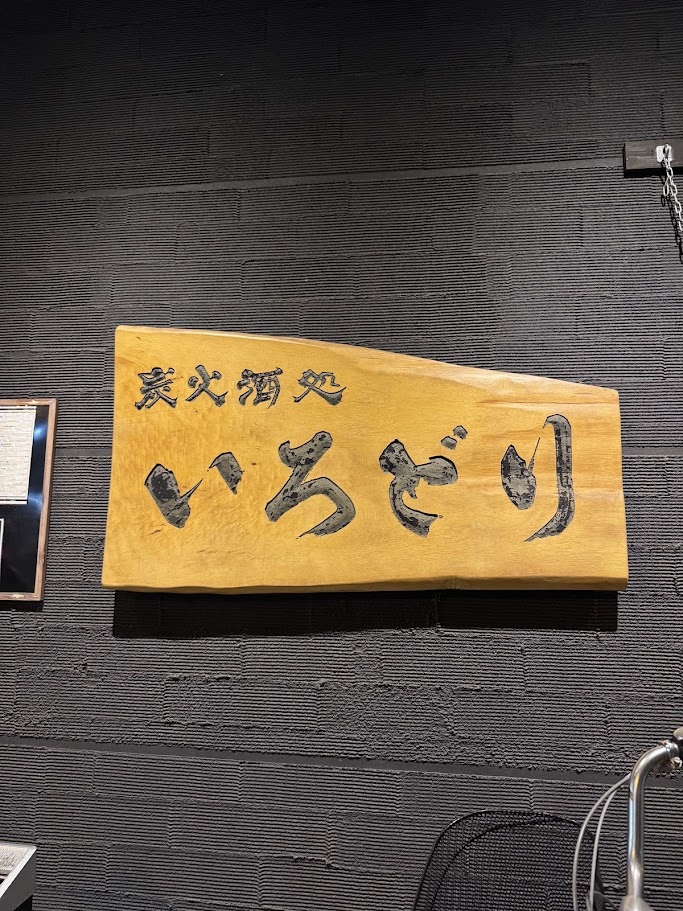 炭火酒処
いろどり